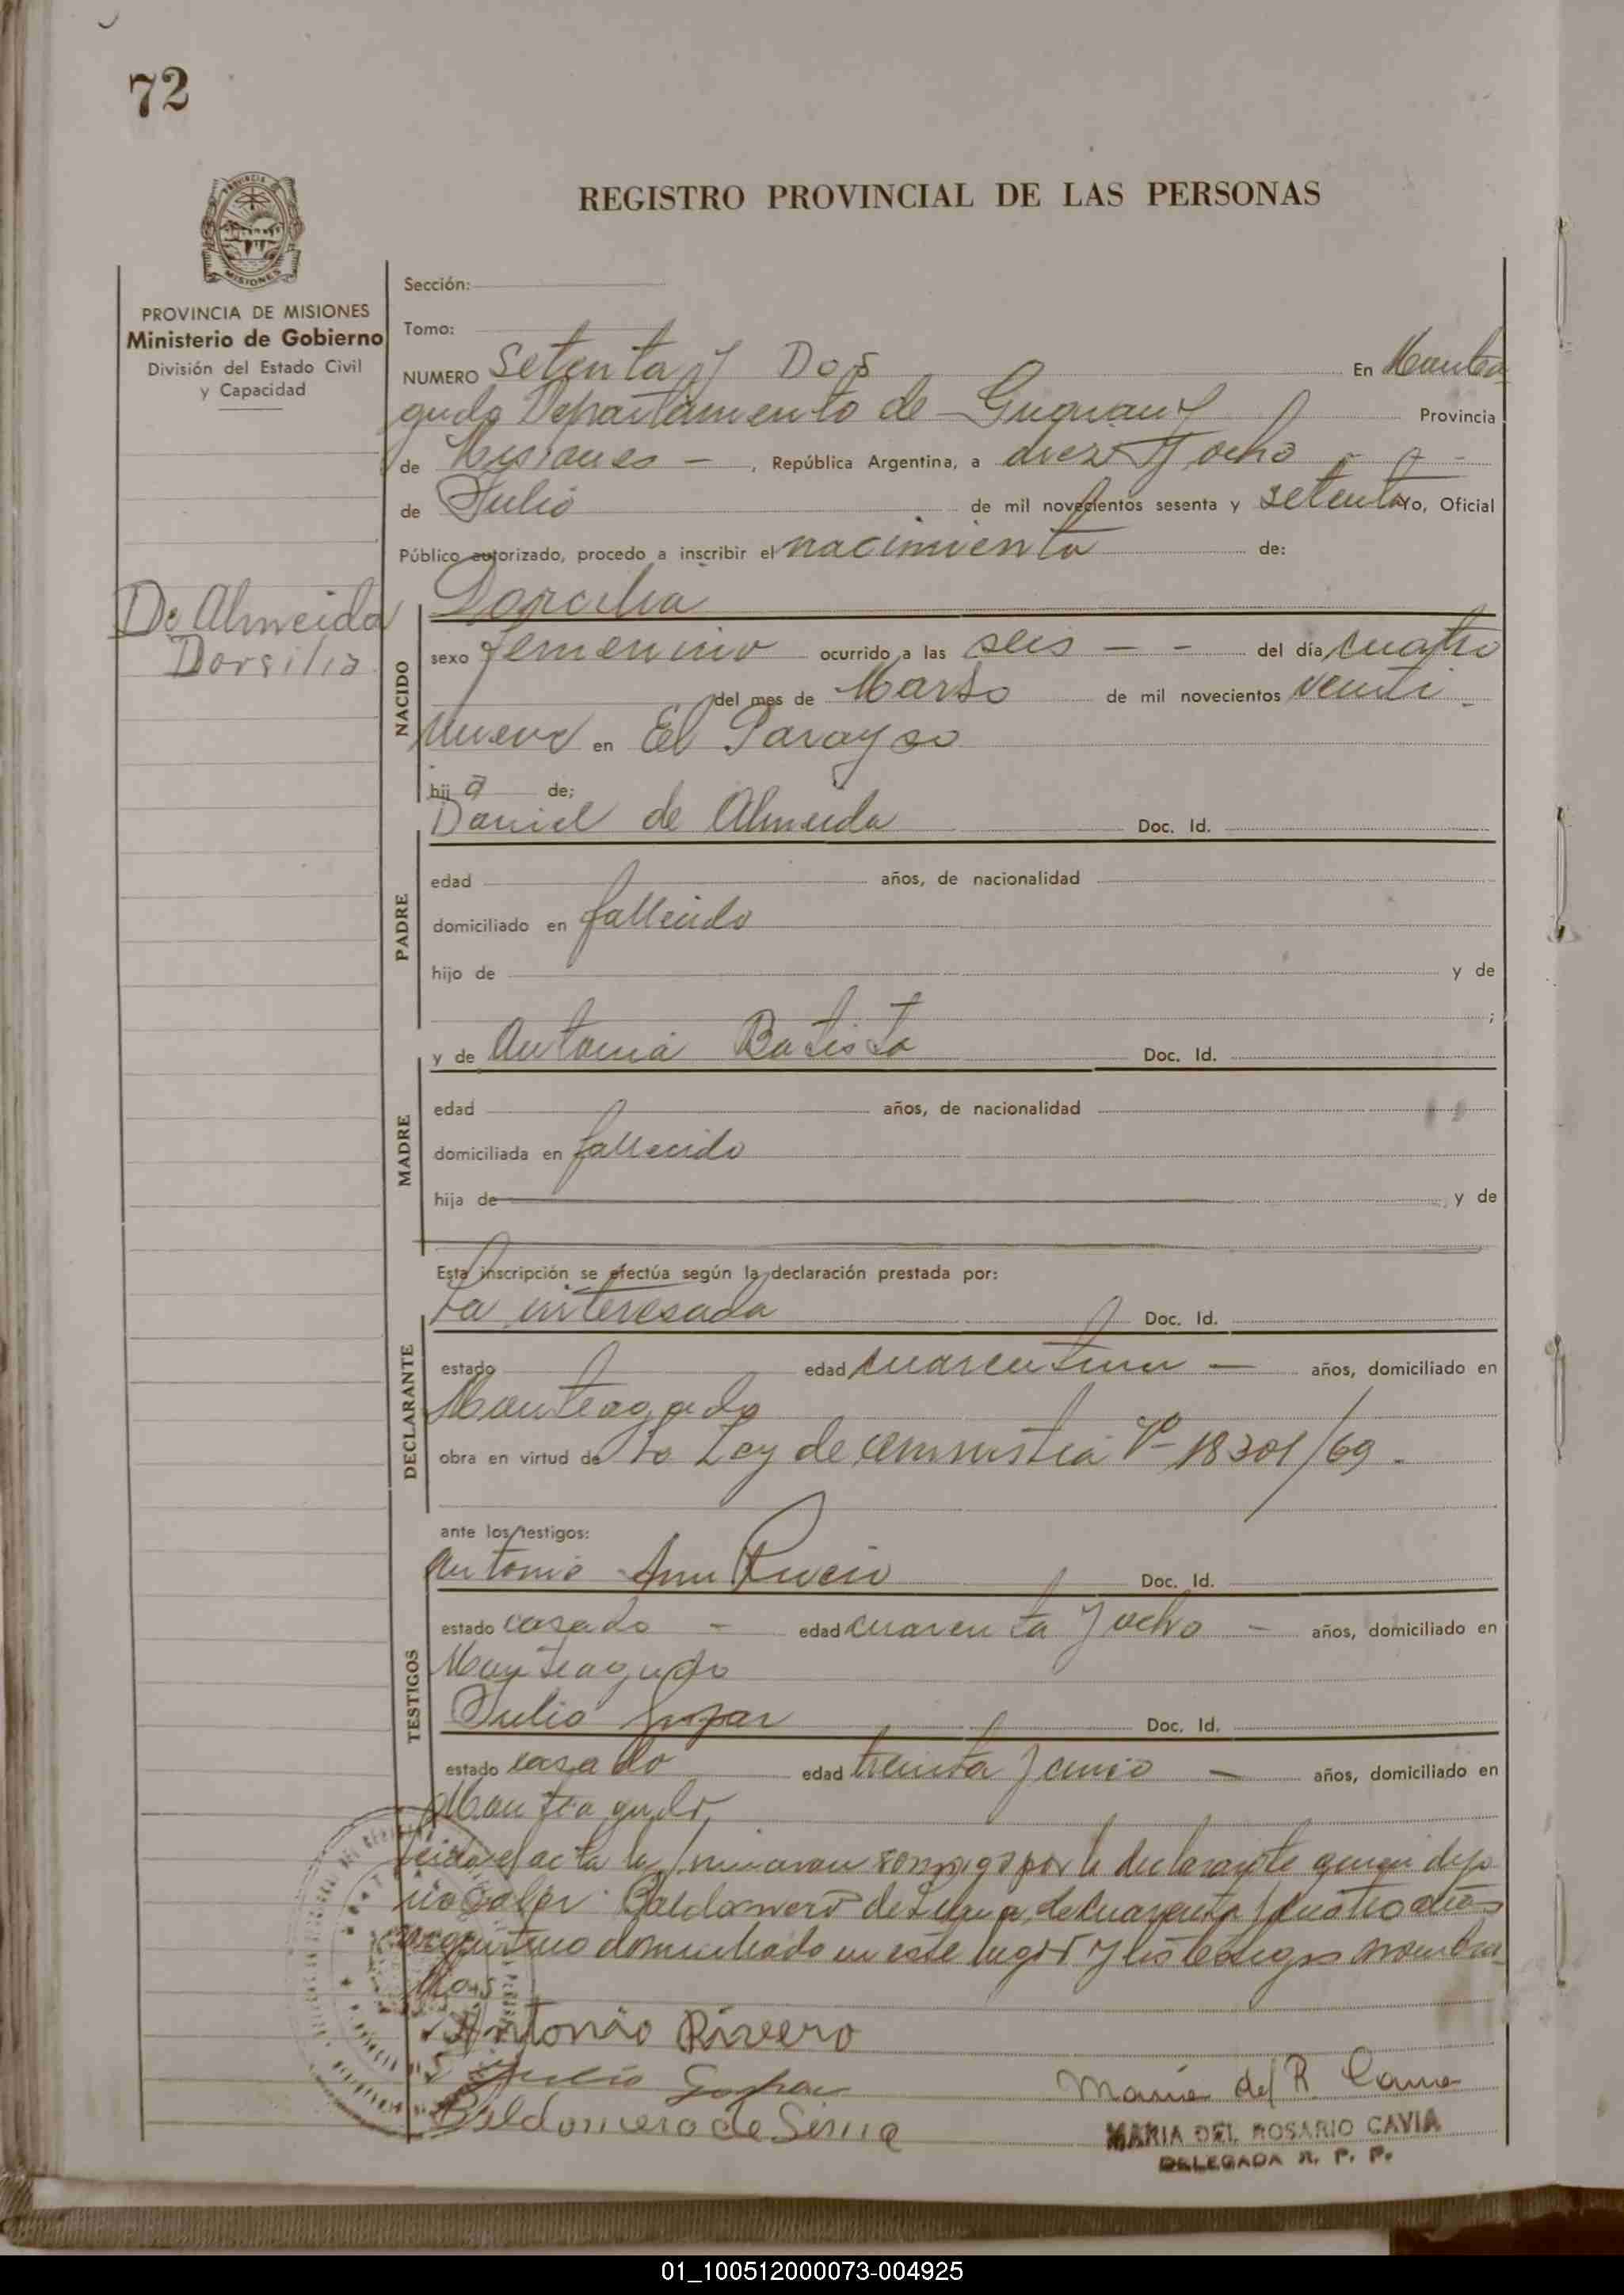 72
REGISTRO PROVINCIAL DE LAS PERSONAS
PROVINCIA DE MISIONES
Ministerio de Gobierno
División del Estado Civil
y Capacidad
Sección:
Tomo:
NUMERO Setenta y Dos En Montea
gudo Departamento de Guarany Provincia
de Misiones - , República Argentina, a diez y ocho - - -
de Julio de mil novecientos sesenta y setenta Yo, Oficial
Público autorizado, procedo a inscribir el nacimiento de:
De Almeida
Dorsilia
Dorcilia
NACIDO
sexo femenino ocurrido a las seis - - del día cuatro
del mes de Marso de mil novecientos venti
nueve en El Parayso
hij a de;
PADRE
Daniel de Almeida Doc. Id.
edad años, de nacionalidad
domiciliado en fallecido
hijo de y de
;
MADRE
y de Antonia Batista Doc. Id.
edad años, de nacionalidad
domiciliada en fallecido
hija de y de
Esta inscripción se efectúa según la declaración prestada por:
DECLARANTE
La interesada Doc. Id.
estado edad años, domiciliado en
Monteagudo
obra en virtud de la Ley de 18301/69.
ante los testigos:
TESTIGOS
Antonio Doc. Id.
estado casado - edad cuarenta y ocho - años, domiciliado en
Monteagudo
Julio Doc. Id.
estado casado edad treinta y - años, domiciliado en
Monteagudo,
el acta la conmigo por la declarante quien
Baldomero de cuarenta y cuatro años
argentino domiciliado en este lugar y los testigos nombra
dos
Antonio Rivero
Julio
Baldomero de
Maria del R. Cavia
MARIA DEL ROSARIO CAVIA
DELEGADA R. P. P.
01_100512000073-004925